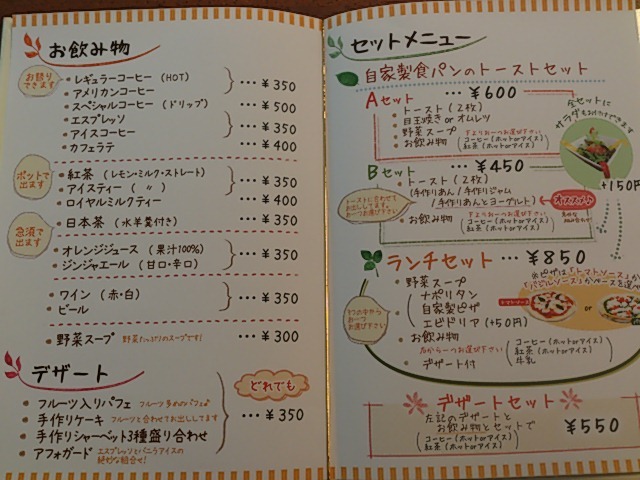 お飲み物
お替り
できます
レギュラーコーヒー (HOT)
アメリカンコーヒー
… ¥350
スペシャルコーヒー (ドリップ) … ¥500
エスプレッソ
アイスコーヒー
… ¥350
カフェラテ … ¥400
ポットで
出ます
紅茶 (レモン・ミルク・ストレート)
アイスティー ( 〃 )
… ¥350
ロイヤルミルクティー … ¥400
急須で
出ます
日本茶 (水羊羹付き) … ¥350
オレンジジュース (果汁100%)
ジンジャエール (甘口・辛口)
… ¥350
ワイン (赤・白)
ビール
… ¥350
野菜スープ 野菜たっぷりのスープです! … ¥300
デザート
どれでも
フルーツ入りパフェ フルーツ多めのパフェ♪
手作りケーキ フルーツと合わせてお出ししてます
手作りシャーベット3種盛り合わせ
アフォガード エスプレッソとバニラアイスの
絶妙な組合せ!
… ¥350
セットメニュー
自家製食パンのトーストセット
Aセット … ¥600
トースト (2枚)
目玉焼き or オムレツ
野菜スープ
お飲み物
下より お一つお選び下さい
コーヒー (ホット or アイス)
紅茶 (ホット or アイス)
全セットに
サラダも
+150円
Bセット … ¥450
トースト (2枚)
(手作りあん / 手作りジャム
/ 手作りあんとヨーグルト)
オススメ♪
お飲み物
下より お一つお選び下さい
コーヒー (ホット or アイス)
紅茶 (ホット or アイス)
ランチセット … ¥850
※ピザは「トマトソース」か
「バジルソース」かベースを選べ
野菜スープ
ナポリタン
自家製ピザ
エビドリア (+50円)
3つの中から
お一つ
お選び下さい
トマトソース
or
お飲み物
右から一つお選び下さい
コーヒー (ホット or アイス)
紅茶 (ホット or アイス)
牛乳
デザート付
デザートセット
左記のデザートと
お飲み物とセットで
コーヒー (ホット or アイス)
紅茶 (ホット or アイス)
¥550